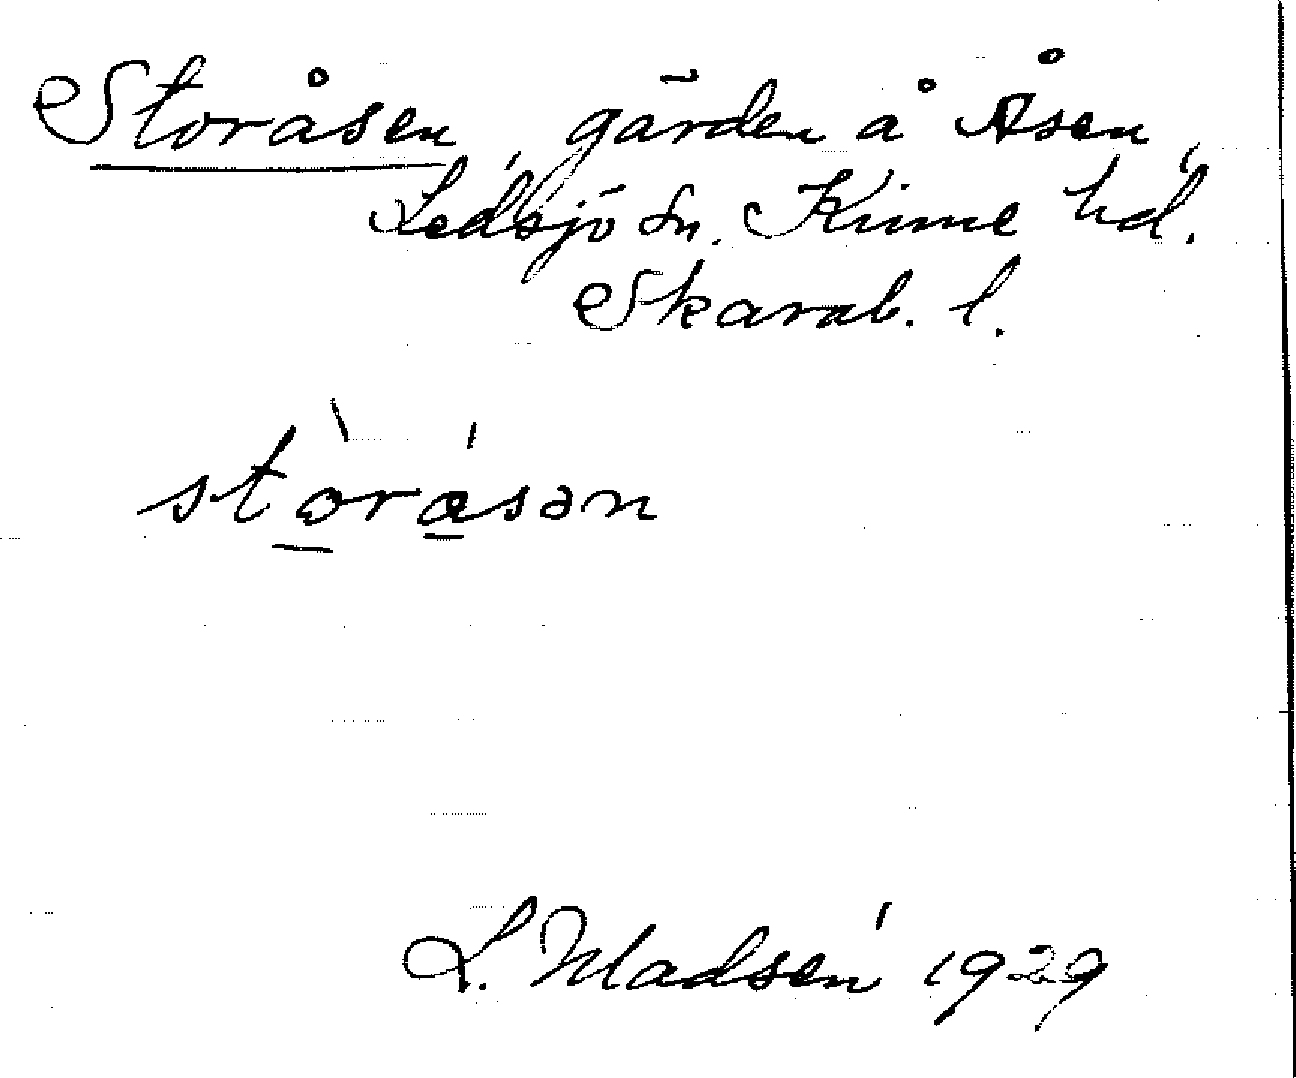 Storåsen, gården å Åsen,
Ledsjö sn. Kinne hd.
Skarab. l.
stòrásən
L. Madsén 1929